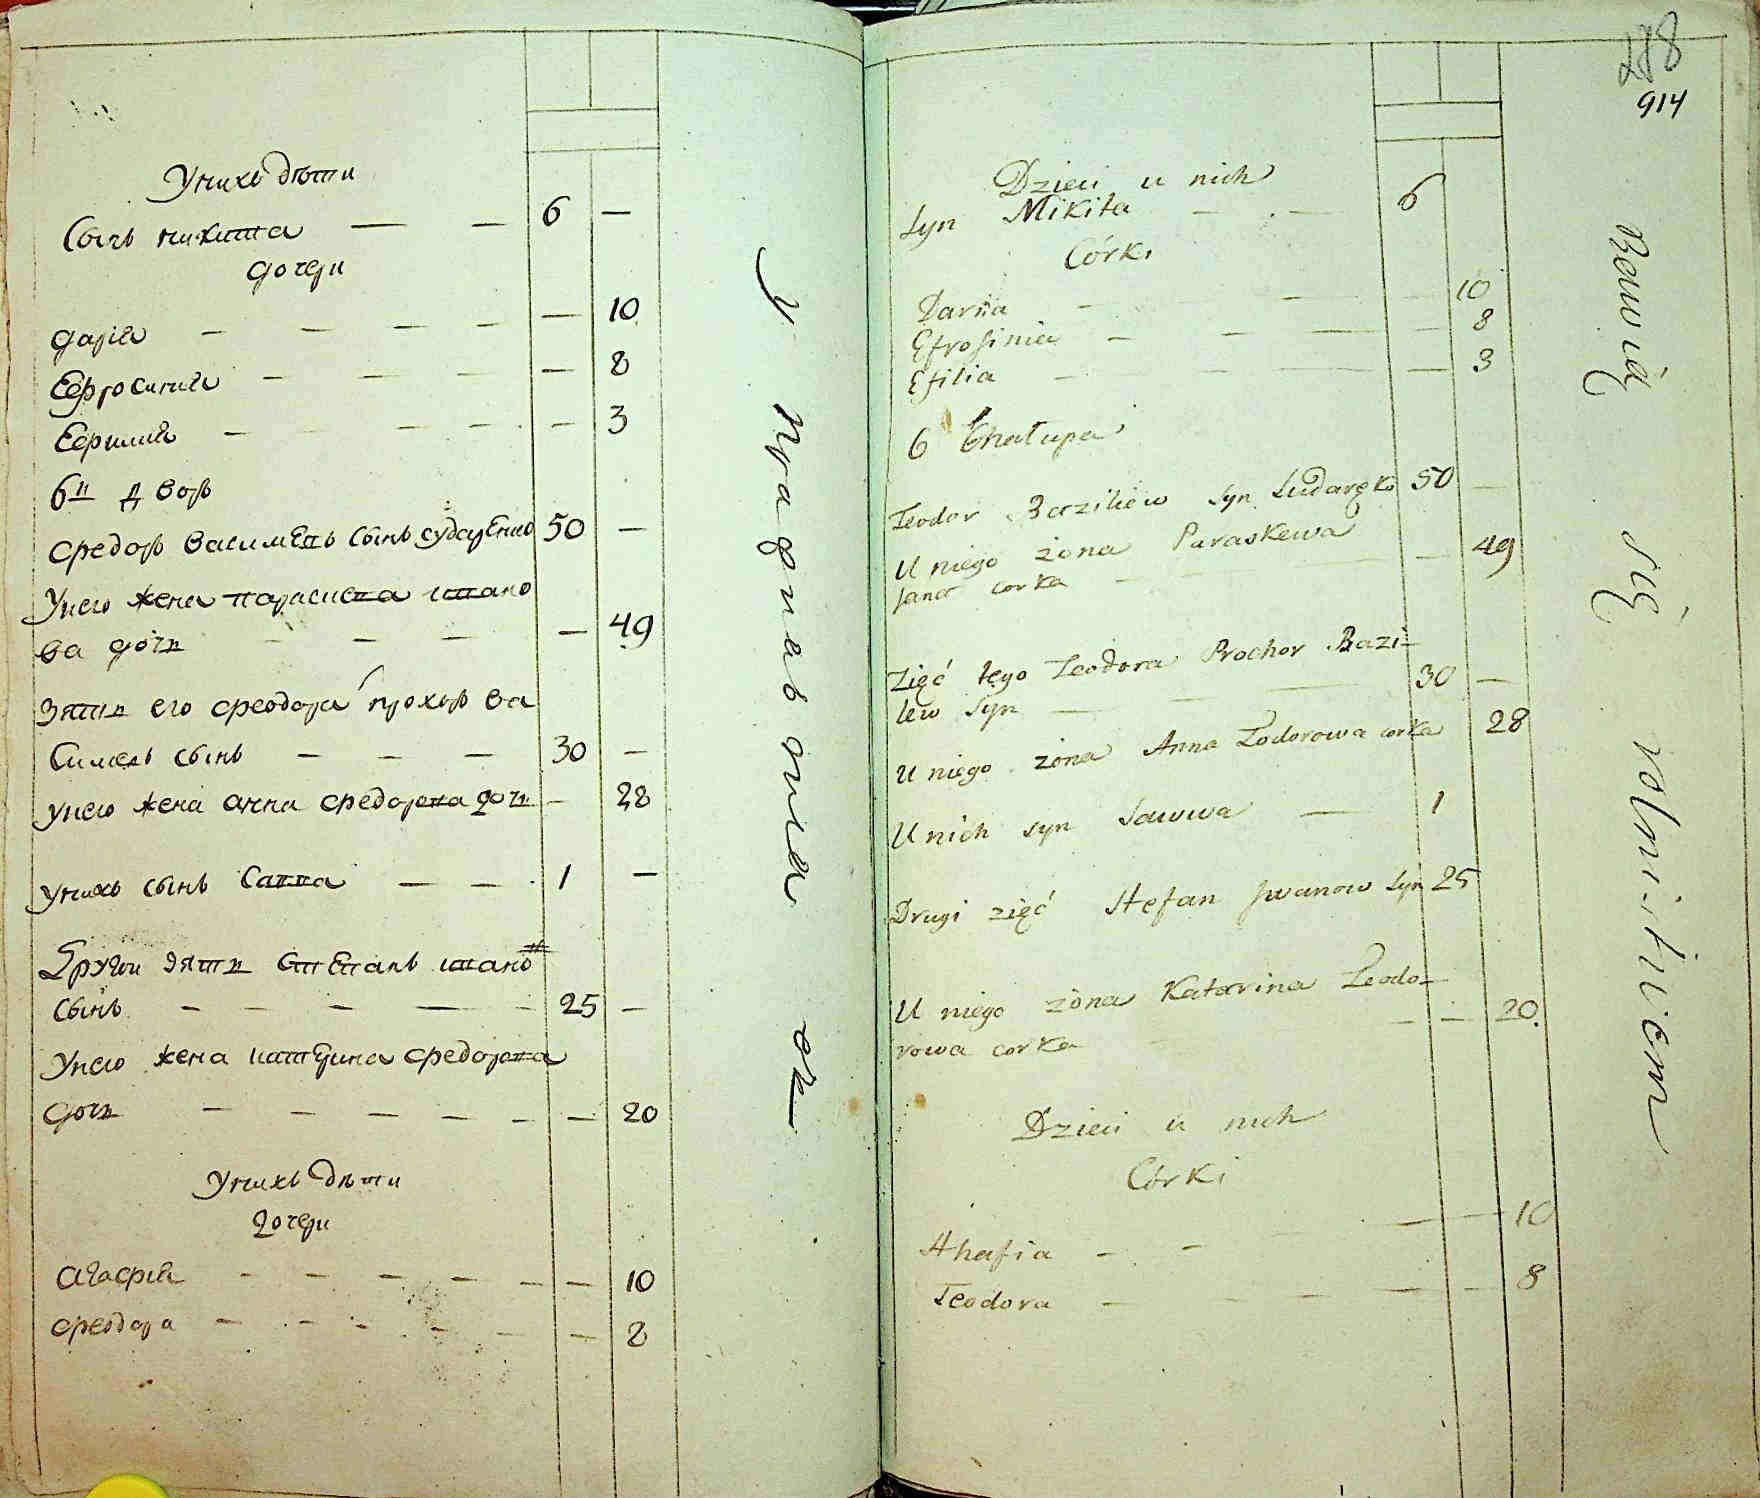 У нихъ дѣти
Сынъ никита — — 6 —
дочери
дарія — — — — — 10
Еефросинія — — — — 8
Еефилія — — — — 3
6й дворъ
Федоръ василевъ сынъ сударенко 50 —
У него жена парасцева ивано
ва дочь — — — — 49
Зять его феодора прохоръ ва
силевъ сынъ — — — 30 —
У него жена анна федорова дочь — 28
У нихъ сынъ Савва — — 1 —
Другои зять Степанъ ивановъ
Сынъ — — — — — 25 —
У него жена катерина федорова
дочь — — — — — — 20
У нихъ дѣти
дочери
агафія — — — — — — 10
феодора — — — — — — 8
У
278
914
Dzieci u nich
Syn Mikita — — 6
Córki
Daria — — — 10
Efrosinia — — — — 8
Efilia — — — — 3
6 Chałupa
Teodor Bazilew Syn Sudaręko 50 —
U niego żona Paraskewa
Jana corka — — — 49
Zięć tego Teodora Prochor Bazi-
lew Syn — — — 30 —
U niego żona Anna Todorowa corka 28
U nich syn Sawwa — 1
Drugi zięć Stefan Jwanow Syn 25
U niego żona Katarina Teodo-
rowa corka — — 20
Dzieci u nich
Córki
Ahafia — — — — 10
Teodora — — — — — 8
Bawią się rolnictwem